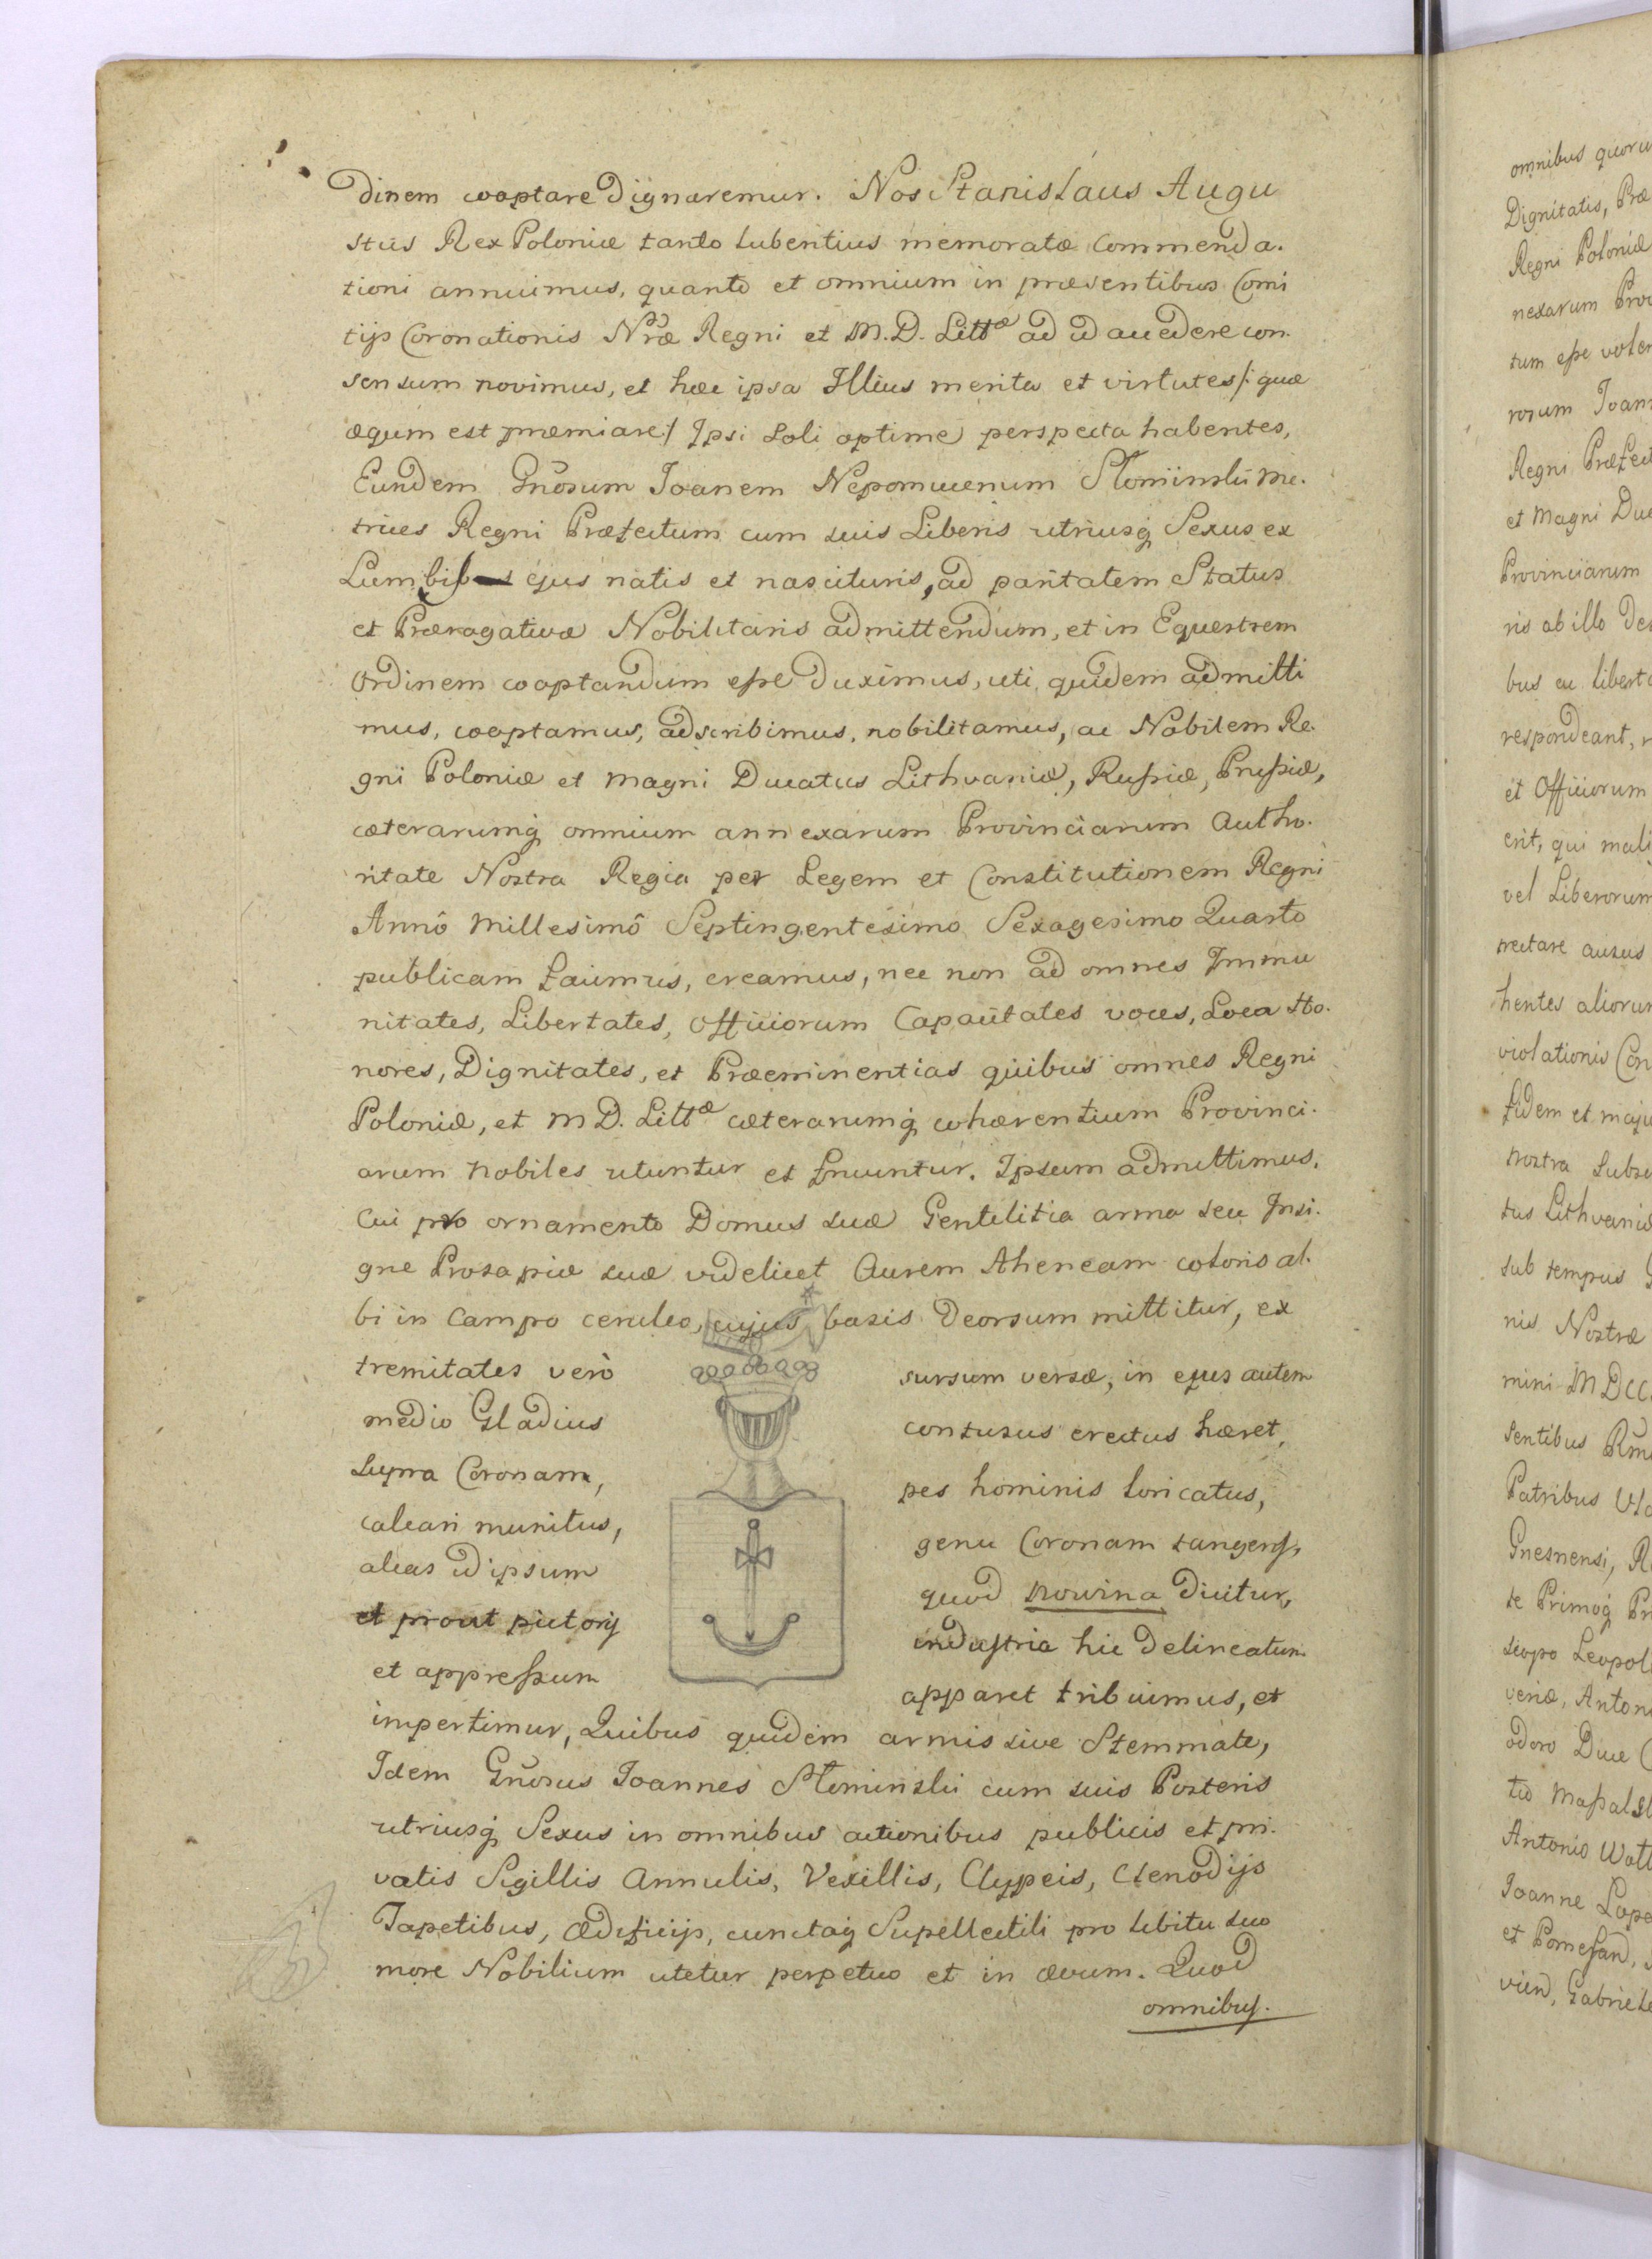 dinem cooptare Dignaremur. Nos Stanislaus Augu
stus Rex Poloniæ tanto lubentius memoratæ Commenda.
tioni annuimus, quanto et omnium in præsentibus Comi
tijs Coronationis Nræ Regni et M. D. Littæ ad id accedere con
sensum novimus, et hæc ipsa Illius merita et virtutes /: quæ
æqum est præmiare :/ Ipsi Soli optime perspecta habentes,
Eundem Gnosum Joanem Nepomucenum Słominski Me.
trices Regni Præfectum cum suis Liberis utriusq Sexus ex
Lumbis ejus natis et nascituris, ad paritatem Status
et Prærogativæ Nobilitaris admittendum, et in Equestrem
Ordinem cooptandum esse Duximus, uti quidem admitti
mus, cooptamus, adscribimus, nobilitamus, ac Nobilem Re.
gni Poloniæ et Magni Ducatus Lithvaniæ, Russiæ, Prussiæ,
cæterarumq omnium annexarum Provinciarum Autho.
ritate Nostra Regia per Legem et Constitutionem Regni
Annô Millesimô Septingentesimo Sexagesimo Quarto
publicam facimus, creamus, nec non ad omnes Immu
nitates, Libertates, Officiorum Capacitates voces, Loca Ho.
nores, Dignitates, et Præeminentias quibus omnes Regni
Poloniæ, et M D. Littæ cæterarumq cohærentium Provinci.
arum Nobiles utuntur et fruuntur. Ipsum admittimus.
Cui pro ornamento Domus suæ Gentilitia arma seu Insi.
gne Prosapiæ suæ videlicet Aurem Aheneam coloris al.
bi in Campo ceruleo, cujus basis Deorsum mittitur, ex
tremitates verò sursum versæ, in ejus autem
medio Gladius contusus erectus hæret,
Supra Coronam, pes hominis loricatus,
calcari munitus, genu Coronam tangens,
alias id ipsum quod Nowina Dicitur,
et prout pictoris industria hic Delineatum
et appressum apparet tribuimus, et
impertimur, Quibus quidem armis sive Stemmate,
Idem Gnosus Joannes Słominski cum suis Posteris
utriusq Sexus in omnibus actionibus publicis et pri.
vatis Sigillis Annulis, Vexillis, Clypeis, Ctenodijs
Tapetibus, Ædificijs, cunctaq Supellectili pro libitu suo
more Nobilium utetur perpetuo et in ævum. Quod
omnibus.
omnibus quoru
Dignitatis, Præ
Regni Poloniæ
nexarum Prov
tum esse volen
rosum Joann
Regni Præfect
et Magni Duc
Provinciarum
ris ab illo Des
bus ac libert
respondeant,
et Officiorum
erit, qui mali
vel Liberorum
rectare ausus
hentes aliorum
violationis Con
fidem et maju
Nostra Subsc
tus Lithvaniæ
sub tempus
nis Nostræ
mini MDCC
sentibus
Patribus
Gnesnensi,
te Primoq Pr
scopo Leopol
veriæ, Anton
odoro Duce
tio Massalsk
Antonio Woll
Joanne
et Pomesan,
vien, Gabriele